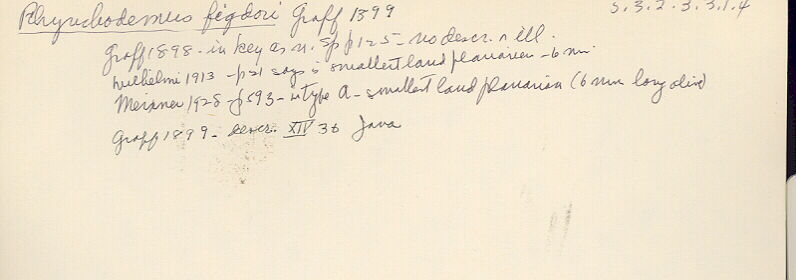 Rhynchodemus figdori Graff 1899
5.3.2.3.3.1.4
Graff 1898 - in key as n. sp p 125 - no descr. n ill.
Wilhelmi 1913 - p21 says is smallest land planarian - 6 mm.
Meixner 1928 - p593 - type A - smallest land planarian (6 mm long alive)
Graff 1899 - descr. XIV 36 Java